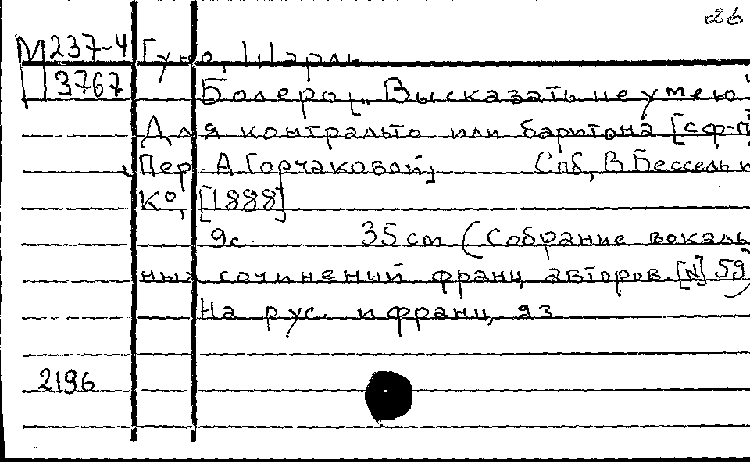 26
М 237-4 Гуно, Шарль
3767 Болеро[„Высказать не умею"
Для контральто или баритона [с ф-п
Пер. А. Горчаковой] Спб, В. Бессель и
К°, [1888]
9с 35 см (Собрание вокаль
ных сочинений франц. авторов. [N] 59)
На рус. и франц. яз
2196